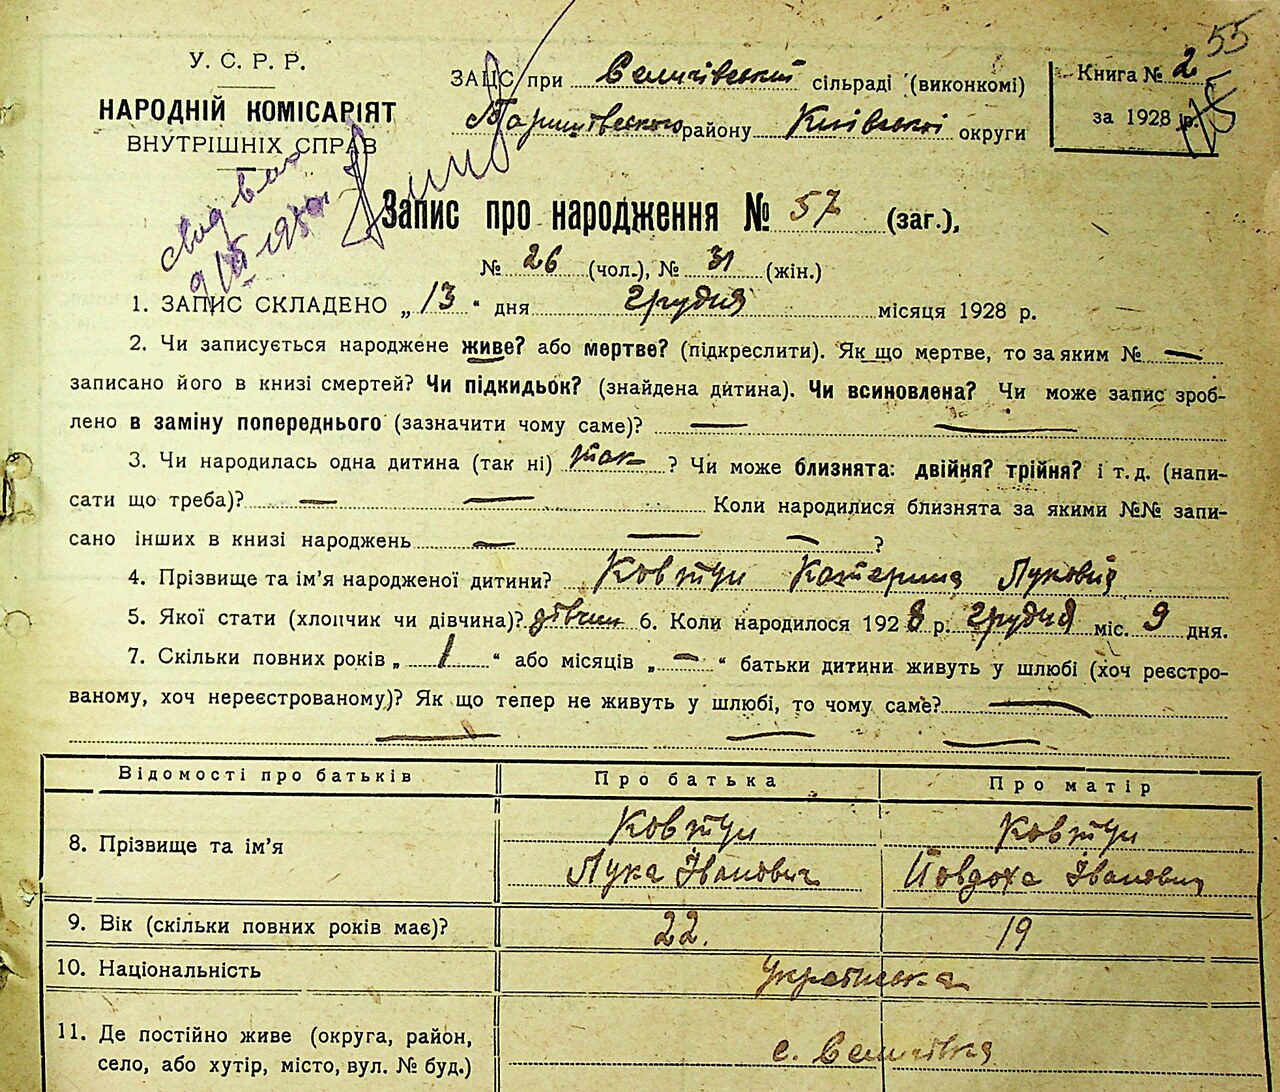 55
У. С. Р. Р.
НАРОДНІЙ КОМІСАРІЯТ
ВНУТРІШНІХ СПРАВ
ЗАПИС при Селичівській сільраді (виконкомі)
району Київської округи
Книга № 2
за 1928 р.
Запис про народження № 57 (заг.),
№ 26 (чол.), № 31 (жін.)
1. ЗАПИС СКЛАДЕНО „ 13 “ дня грудня місяця 1928 р.
2. Чи записується народжене живе? або мертве? (підкреслити). Як що мертве, то за яким № —
записано його в книзі смертей? Чи підкидьок? (знайдена дитина). Чи всиновлена? Чи може запис зроб-
лено в заміну попереднього (зазначити чому саме)? — —
3. Чи народилась одна дитина (так ні) так ? Чи може близнята: двійня? трійня? і т. д. (напи-
сати що треба)? — — Коли народилися близнята за якими №№ запи-
сано інших в книзі народжень — — — ?
4. Прізвище та ім’я народженої дитини? Ковтун Катерина Луковна
5. Якої стати (хлопчик чи дівчина)? дівчин 6. Коли народилося 1928 р. грудня міс. 9 дня.
7. Скільки повних років „ 1 “ або місяців „ — “ батьки дитини живуть у шлюбі (хоч реєстро-
ваному, хоч нереєстрованому)? Як що тепер не живуть у шлюбі, то чому саме? —
— — —
Відомості про батьків Про батька Про матір
8. Прізвище та ім’я Ковтун Лука Іванович Ковтун Йовдоха Івановна
9. Вік (скільки повних років має)? 22. 19
10. Національність українська
11. Де постійно живе (округа, район,
село, або хутір, місто, вул. № буд.) с. Селичівка